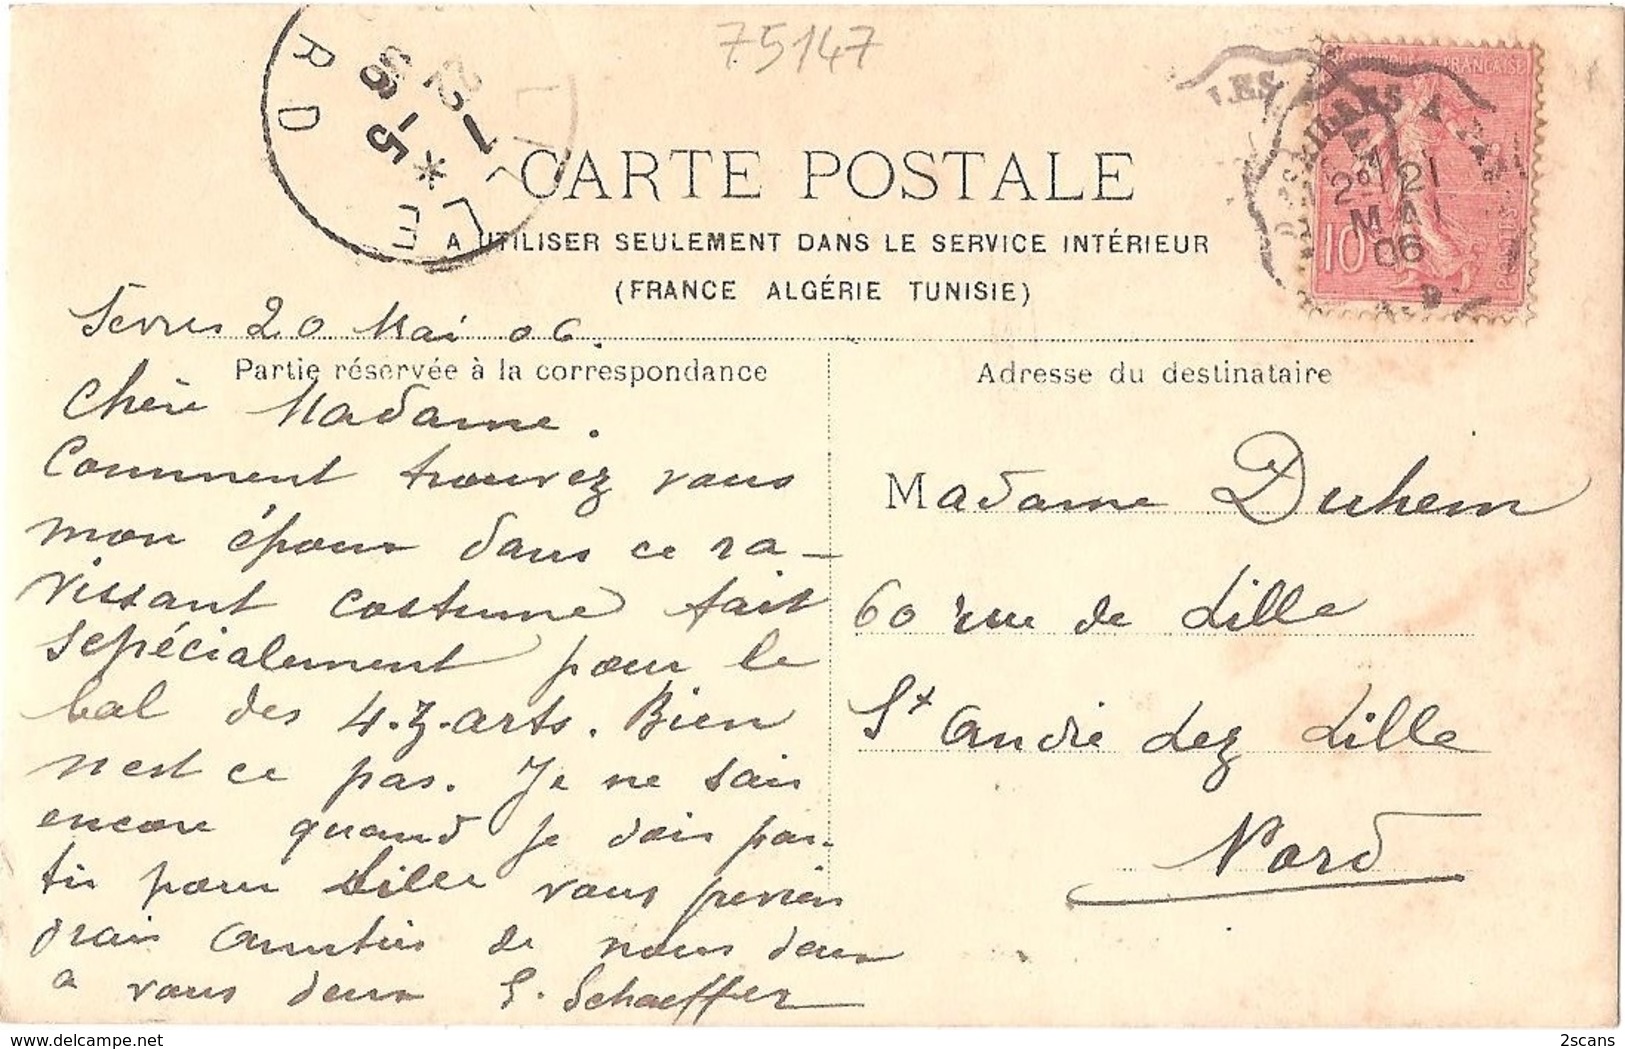 75147
CARTE POSTALE
A UTILISER SEULEMENT DANS LE SERVICE INTÉRIEUR
(FRANCE ALGÉRIE TUNISIE)
LILLE
RD
22-5
06
21
MAI
06
10
Sevres 20 Mai 06.
Partie réservée à la correspondance
Chère Madame.
Comment trouvez vous
mon époux dans ce ra-
vissant costume fait
sepécialement pour le
bal des 4.z.arts. Bien
n'est ce pas. Je ne sais
encore quand je dois par-
tir pour Lille vous previen
drais Amitiés de nous deux
a vous deux S. Schaeffer
Adresse du destinataire
Madame Duhem
60 rue de Lille
St André Lez Lille
Nord
2scans